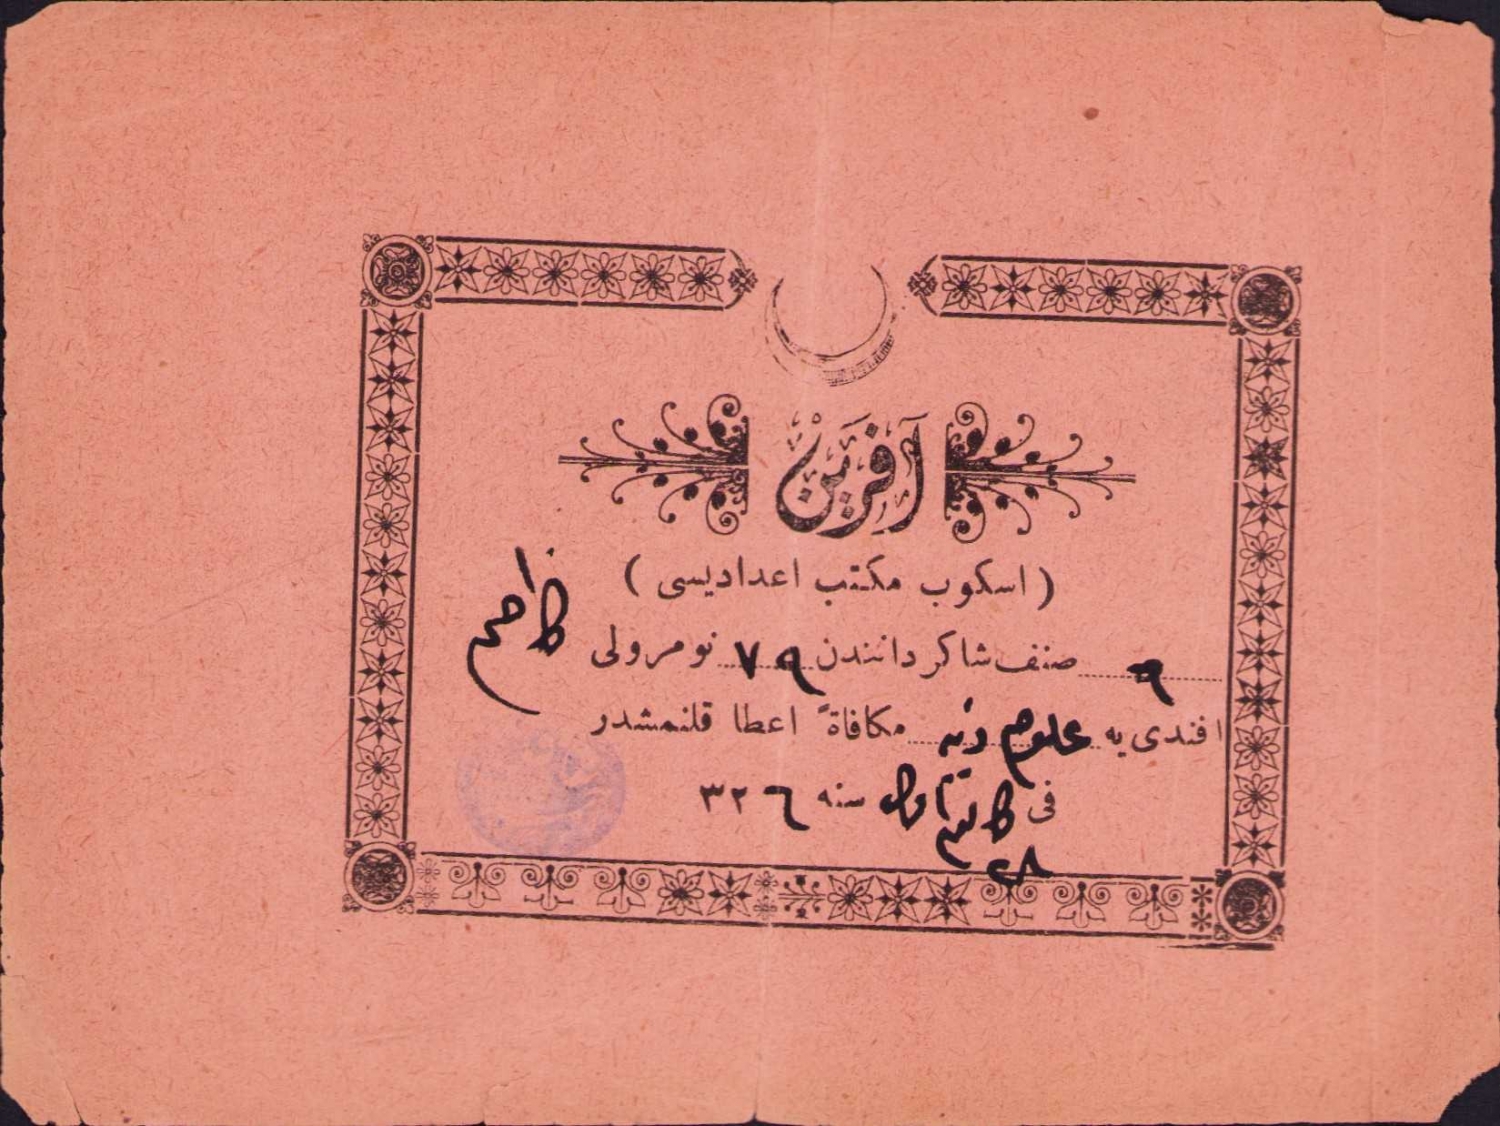 آفرين
( اسكوب مكتب اعداديسى )
٦ صنف شاكردانندن ٧٩ نومرولى كاظم
افندى يه علوم دينيه مكافاةً اعطا قلنمشدر
فى ٢٨ سنه ٣٢٦